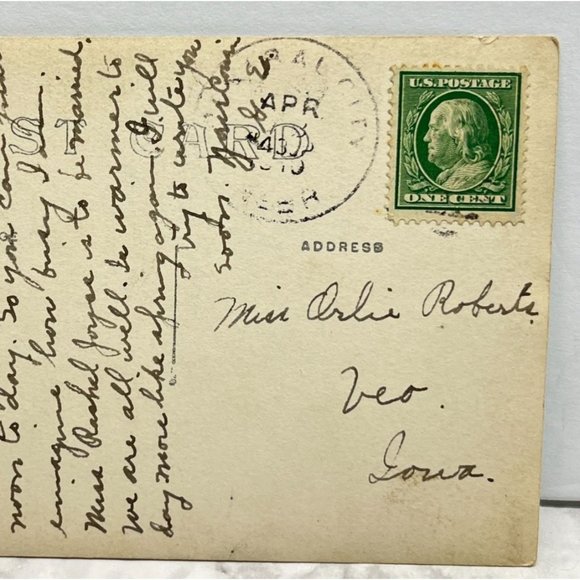 ST CARD
CENTRAL CITY
APR
NEBR
U.S. POSTAGE
ONE CENT
ADDRESS
Miss Orlie Roberts.
Veo.
Iowa.
noon to day. So you can
imagine how busy I am.
Miss Rachel Joyce is to be married.
We are all well. Is warmer to
day more like spring again. I will
try to write you
soon. Your Cousin